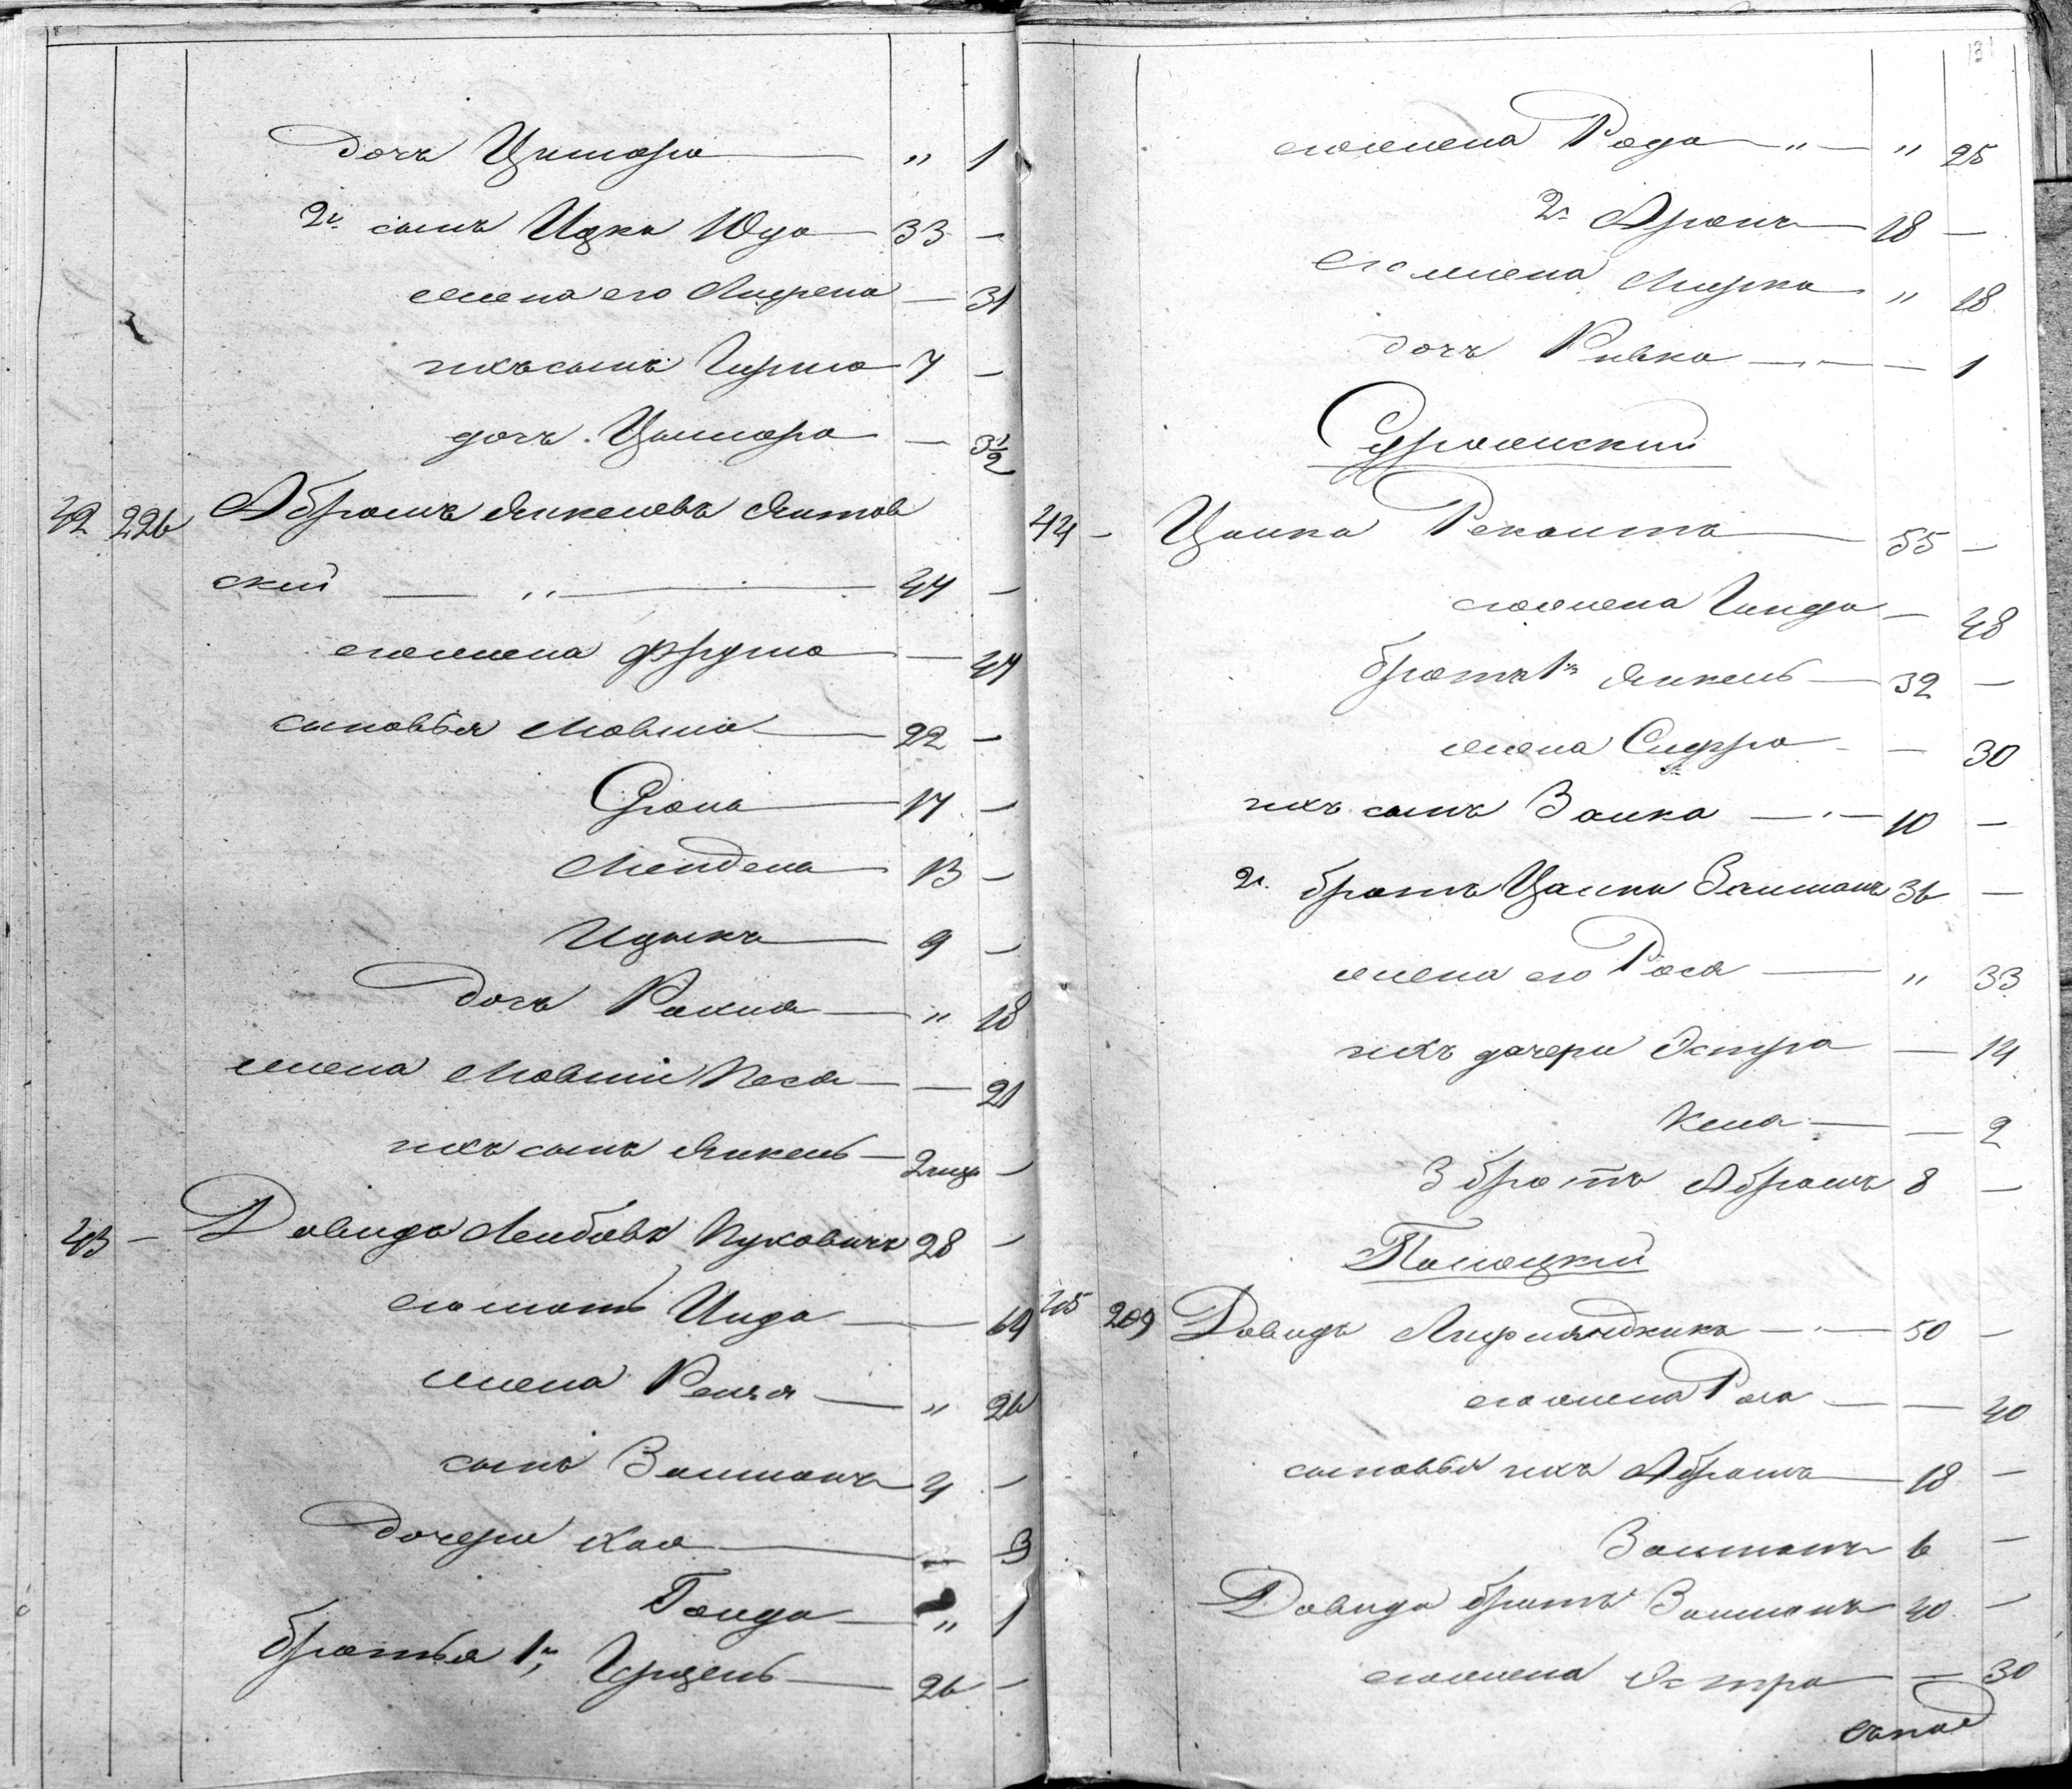 дочь Цимора — " 1
2й сынъ Ицка Юда — 33 —
жена его Мирена — 31
ихъ сынъ Гирша 7 —
дочь Цимора — 3½
42 226 Абрамъ Янкелевъ Янтов
ский — " — 47 —
его жена Фрума — 47
сыновья Мовша — 22 —
17 —
Мендель 13 —
Ицыкъ — 9 —
дочь Рахиля — " 18
жена Мовши Песя — — 21
ихъ сынъ Янкель — 2 —
43 — Давидъ Лейбовъ Пуковичъ 28 —
его мать Инда — 64
жена — " 26
сынъ Залманъ 4 —
дочери Хая — — 3
Гонда — " 1
братья 1й Гирцель — 26 —
131
его жена Рода — " — " 25
2й Аронъ — 18 —
его жена Мирка — " 18
дочь Ривка — — 1
44 — Цалка — 55 —
его жена Гинда — 48
братъ 1й Янкель — 32 —
жена Сифра — — 30
ихъ сынъ Залка — 10 —
2й братъ Цалки Залманъ 36 —
жена его Рася — " 33
ихъ дочери Эстра — 14
Кеня — — 2
3 братъ Абрамъ 8 —
Полоцкий
45 209 Давидъ — 50 —
его жена Роха — — 40
сыновья ихъ Абрамъ — 18 —
Залманъ 6 —
Давида братъ Залманъ 40 —
его жена Эстра — — 30